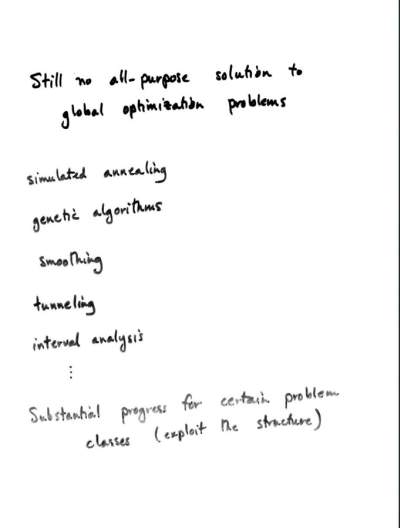 Still no all-purpose solution to
global optimization problems
simulated annealing
genetic algorithms
smoothing
tunneling
interval analysis
⋮
Substantial progress for certain problem
classes (exploit the structure)